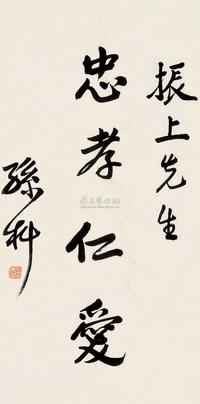 振上先生
忠孝仁愛
孫科